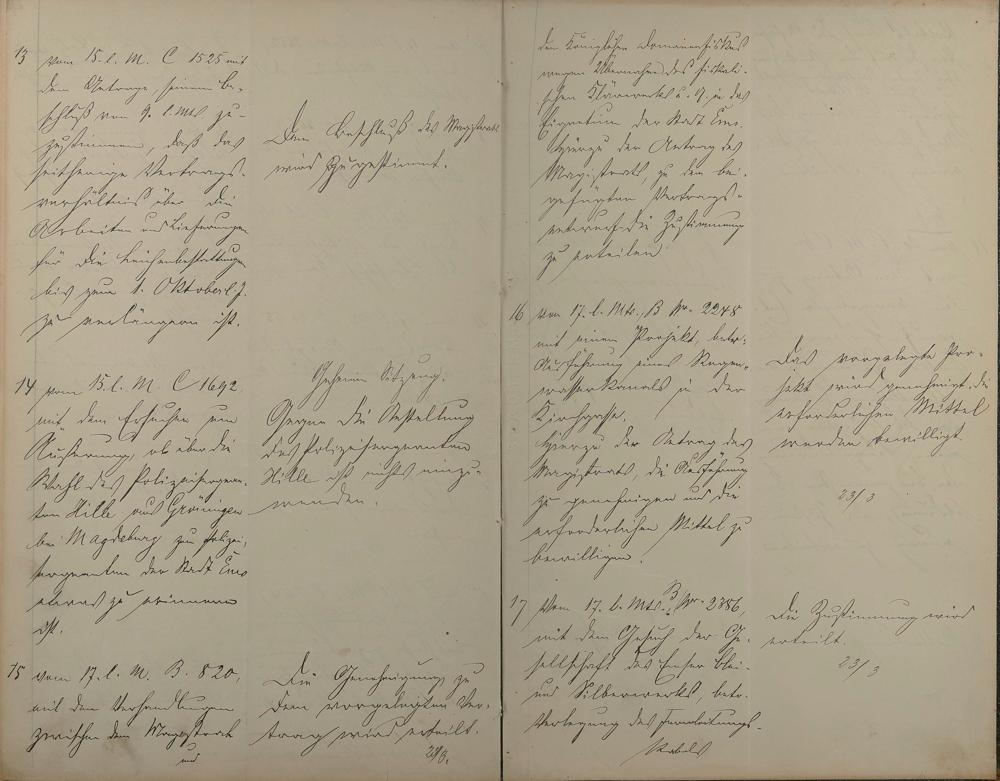 13 vom 15. l. M. C 1525 mit
dem Antrage, seinem Be-
schluß vom 9. l. Mts. zu-
zustimmen, daß das
seitherige Vertrags-
verhältnis über die
Arbeiten und Lieferungen
für die Leichenbestattungen
bis zum 1. Oktober l. J.
zu verlängern ist.
Dem Beschluß des Magistrats
wird zugestimmt.
14 vom 15. l. M. C 1692
mit dem Ersuchen um
Äußerung, ob über die
Wahl des Polizeisergean-
ten Hille aus Gröningen
bei Magdeburg zum Polizei-
sergeanten der Stadt Ems
etwas zu erinnern
ist.
Geheime Sitzung.
Gegen die Anstellung
des Polizeisergeanten
Hille ist nichts einzu-
wenden.
15 vom 17. l. M. B. 820,
mit den Verhandlungen
zwischen dem Magistrat
und
Die Genehmigung zu
dem vorgelegten Ver-
trag wird erteilt.
23/3.
dem Königlichen Domänenfiskus
wegen Übernahme des fiskali-
schen Klärwerks u. s. w. in das
Eigentum der Stadt Ems.
Hierzu der Antrag des
Magistrats, zu dem bei-
gefügten Vertrags-
entwurf die Zustimmung
zu erteilen
16 vom 17. l. Mts., B Nr. 2248
mit einem Projekt, betr.
Ausführung eines Regen-
wasserkanals in der
Kirchgasse.
Hierzu der Antrag des
Magistrats, die Ausführung
zu genehmigen und die
erforderlichen Mittel zu
bewilligen.
Das vorgelegte Pro-
jekt wird genehmigt, die
erforderlichen Mittel
werden bewilligt.
23/3
17 vom 17. l. Mts. B Nr. 2386,
mit dem Gesuch der Ge-
sellschaft des Emser Blei-
und Silberwerks, betr.
Verlegung des Fernleitungs-
Kabels
Die Zustimmung wird
erteilt.
23/3